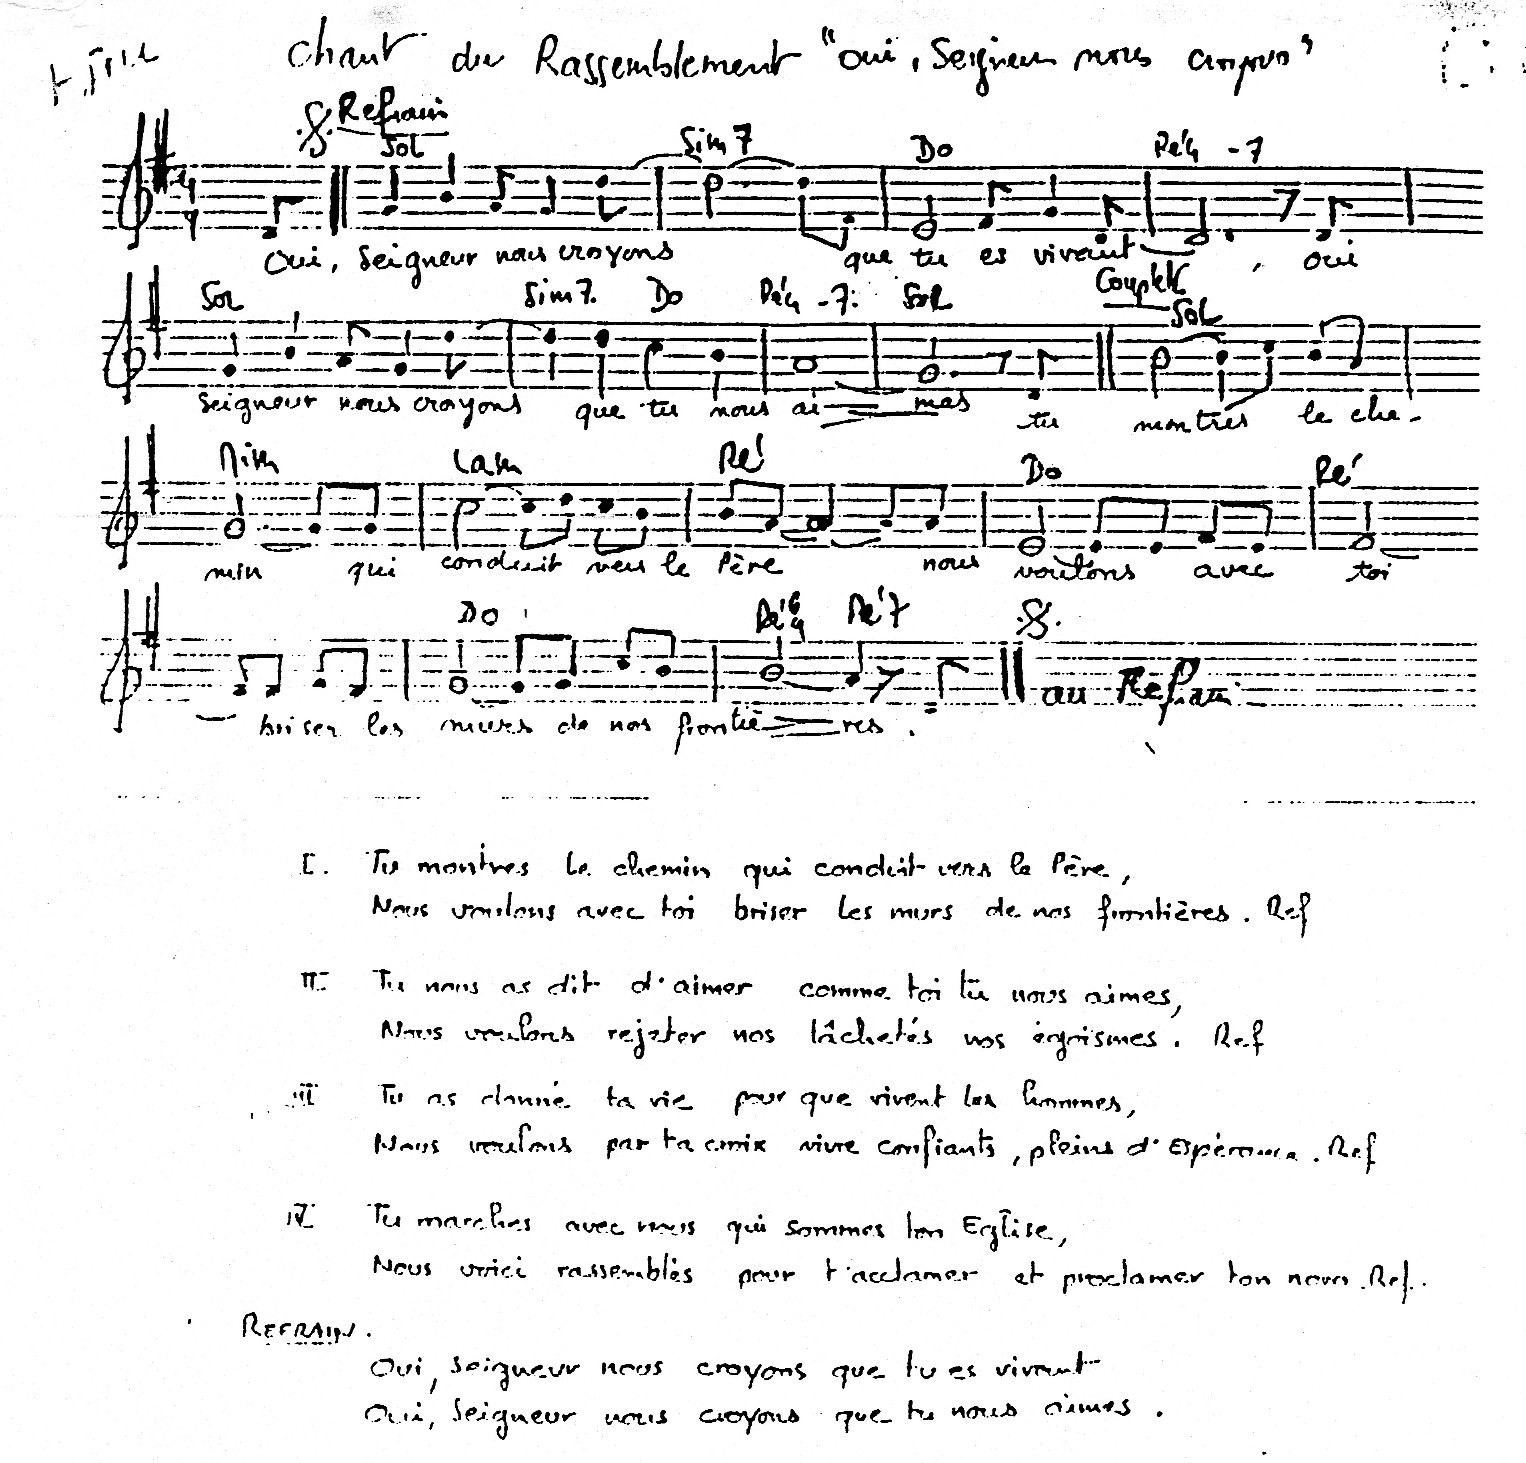 Chant du Rassemblement "Oui, Seigneur nous croyons"
Refrain
Sol Sim 7 Do Ré4 - 7
Oui, Seigneur nous croyons que tu es vivant, oui
Couplet
Sol Sim 7. Do Ré4 - 7. Sol Sol
Seigneur nous croyons que tu nous ai-mes tu montres le che-
Mim Lam Ré Do Ré
min qui conduit vers le Père nous voulons avec toi
Do Ré64 Ré7
briser les murs de nos frontiè-res.
au Refrain
I. Tu montres le chemin qui conduit vers le Père,
Nous voulons avec toi briser les murs de nos frontières. Ref
II Tu nous as dit d'aimer comme toi tu nous aimes,
Nous voulons rejeter nos lâchetés nos égoïsmes. Ref
III Tu as donné ta vie pour que vivent les hommes,
Nous voulons par ta croix vivre confiants, pleins d'Espérance. Ref
IV Tu marches avec nous qui sommes ton Eglise,
Nous voici rassemblés pour t'acclamer et proclamer ton nom. Ref.
REFRAIN.
Oui, Seigneur nous croyons que tu es vivant
Oui, Seigneur nous croyons que tu nous aimes.